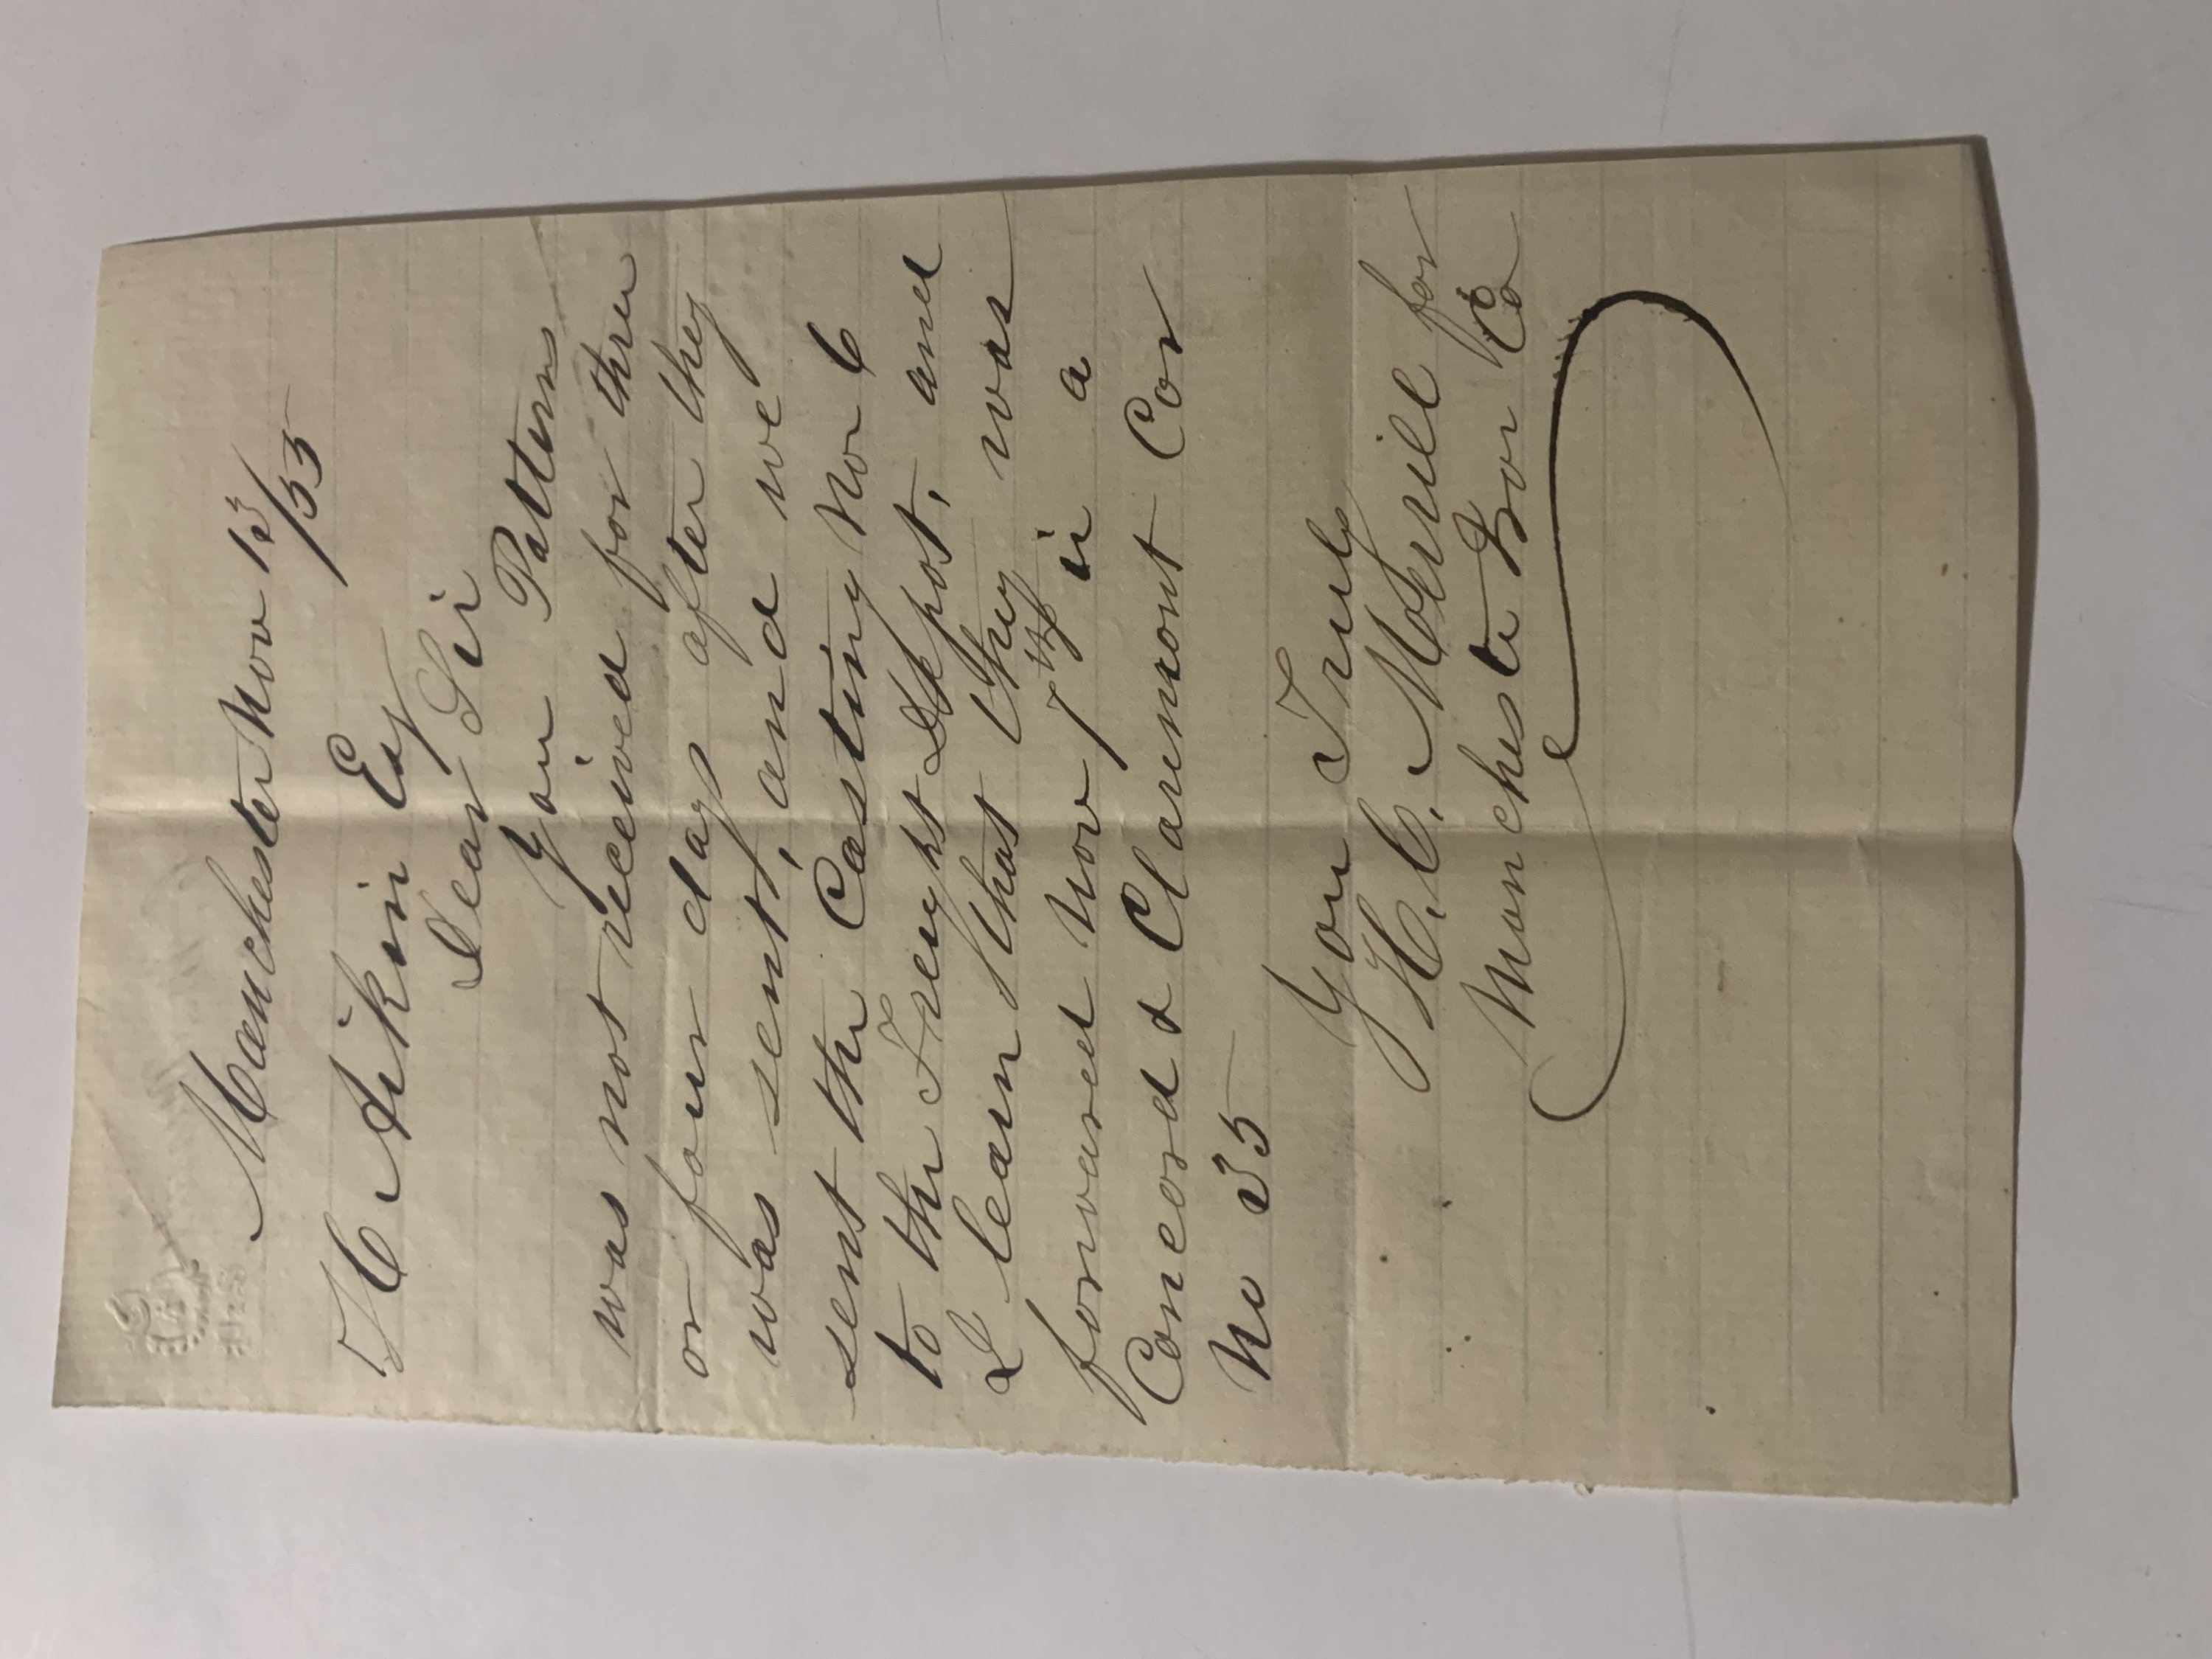 Manchester Nov 13/55
H Aikin Esq
Dear Sir
Your Patterns
was not received for three
or four days after they
was sent, and we
sent the Casting Nov 6
to the Freight Depot, and
I learn that they was
forward Nov 7th in a
Concord & Claremont Car
No 35
Your Truly
H. C. Merrill for
Manchester Iron Co